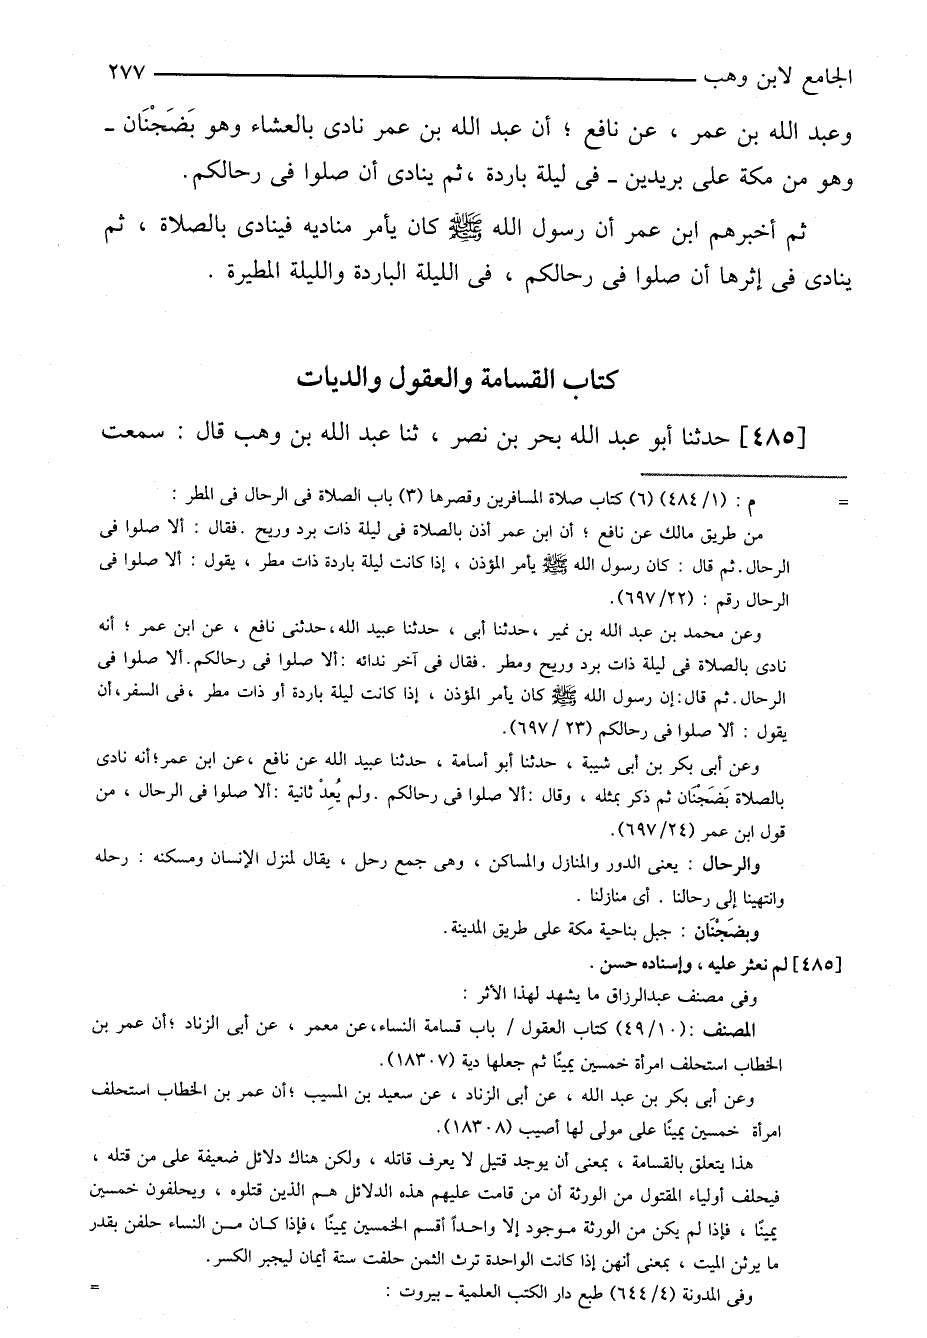 الجامع لابن وهب ــــــــــــ ٢٧٧
وعبد الله بن عمر ، عن نافع ؛ أن عبد الله بن عمر نادى بالعشاء وهو بَضَجْنَان ـ
وهو من مكة على بريدين ـ فى ليلة باردة ،ثم ينادى أن صلوا فى رحالكم.
ثم أخبرهم ابن عمر أن رسول الله ﷺ كان يأمر مناديه فينادى بالصلاة ، ثم
ينادى فى إثرها أن صلوا فى رحالكم ، فى الليلة الباردة والليلة المطيرة .
كتاب القسامة والعقول والديات
[٤٨٥] حدثنا أبو عبد الله بحر بن نصر ، ثنا عبد الله بن وهب قال : سمعت
= م : (١/ ٤٨٤) (٦) كتاب صلاة المسافرين وقصرها (٣) باب الصلاة فى الرحال فى المطر :
من طريق مالك عن نافع ؛ أن ابن عمر أذن بالصلاة فى ليلة ذات برد وريح .فقال : ألا صلوا فى
الرحال.ثم قال : كان رسول الله ﷺ يأمر المؤذن ، إذا كانت ليلة باردة ذات مطر ، يقول : ألا صلوا فى
الرحال رقم : (٦٩٧/٢٢).
وعن محمد بن عبد الله بن نمير ،حدثنا أبى ، حدثنا عبيد الله،حدثنى نافع ، عن ابن عمر ؛ أنه
نادى بالصلاة فى ليلة ذات برد وريح ومطر .فقال فى آخر ندائه :ألا صلوا فى رحالكم.ألا صلوا فى
الرحال.ثم قال:إن رسول الله ﷺ كان يأمر المؤذن ، إذا كانت ليلة باردة أو ذات مطر ،فى السفر،أن
يقول : ألا صلوا فى رحالكم (٢٣ /٦٩٧).
وعن أبى بكر بن أبى شيبة ، حدثنا أبو أسامة ، حدثنا عبيد الله عن نافع ،عن ابن عمر؛أنه نادى
بالصلاة بَضَجْنَان ثم ذكر بمثله ، وقال :ألا صلوا فى رحالكم .ولم يُعِدْ ثانية :ألا صلوا فى الرحال ، من
قول ابن عمر (٦٩٧/٢٤).
والرحال : يعنى الدور والمنازل والمساكن ، وهى جمع رحل ، يقال لمنزل الإنسان ومسكنه : رحله
وانتهينا إلى رحالنا . أى منازلنا .
وبضَجْنَان : جبل بناحية مكة على طريق المدينة.
[٤٨٥] لم نعثر عليه ، وإسناده حسن .
وفى مصنف عبدالرزاق ما يشهد لهذا الأثر :
المصنف :(٤٩/١٠) كتاب العقول / باب قسامة النساء،عن معمر ، عن أبى الزناد ؛أن عمر بن
الخطاب استحلف امرأة خمسين يمينًا ثم جعلها دية (١٨٣٠٧).
وعن أبى بكر بن عبد الله ، عن أبى الزناد ، عن سعيد بن المسيب ؛أن عمر بن الخطاب استحلف
امرأة خمسين يمينًا على مولى لها أصيب (١٨٣٠٨).
هذا يتعلق بالقسامة ، بمعنى أن يوجد قتيل لا يعرف قاتله ، ولكن هناك دلائل ضعيفة على من قتله ،
فيحلف أولياء المقتول من الورثة أن من قامت عليهم هذه الدلائل هم الذين قتلوه ، ويحلفون خمسين
يمينًا ، فإذا لم يكن من الورثة موجود إلا واحداً أقسم الخمسين يمينًا ،فإذا كان من النساء حلفن بقدر
ما يرثن الميت ، بمعنى أنهن إذا كانت الواحدة ترث الثمن حلفت ستة أيمان ليجبر الكسر.
وفى المدونة (٦٤٤/٤) طبع دار الكتب العلمية ـ بيروت : =